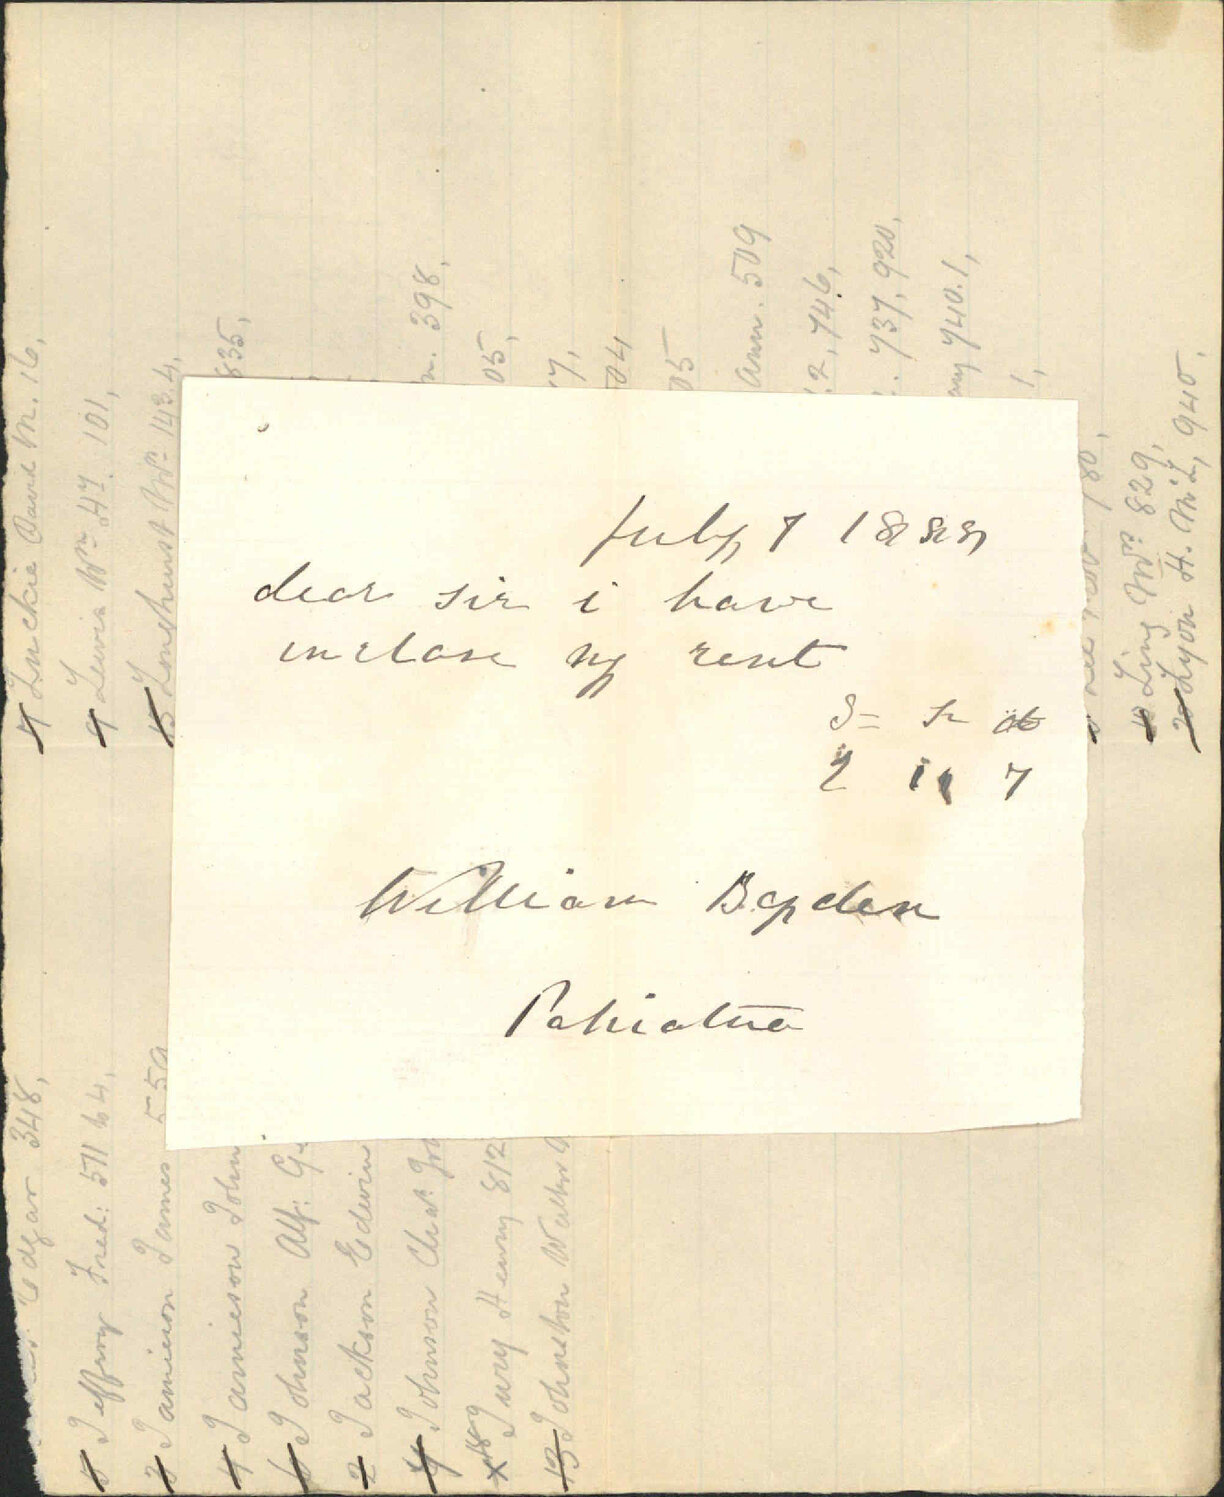 July 7 1888
dear sir i have
inclose my rent
William Bogden
Pahiatua
Luckie David M. 16,
Lewis Wm 47. 101,
Longhurst Wm 143.4,
835,
398,
05,
04
05
ann. 509
746,
737, 920,
740.1,
Ling Wm 829,
Lyon H. McL, 940.
Edgar 348,
Jeffroy Fred: 511 64,
Jamieson James 559
Jamieson John
Johnson Alf: Ge
Jackson Edwin
Johnson Chas:
Jury Henry 812
Johnston Walter